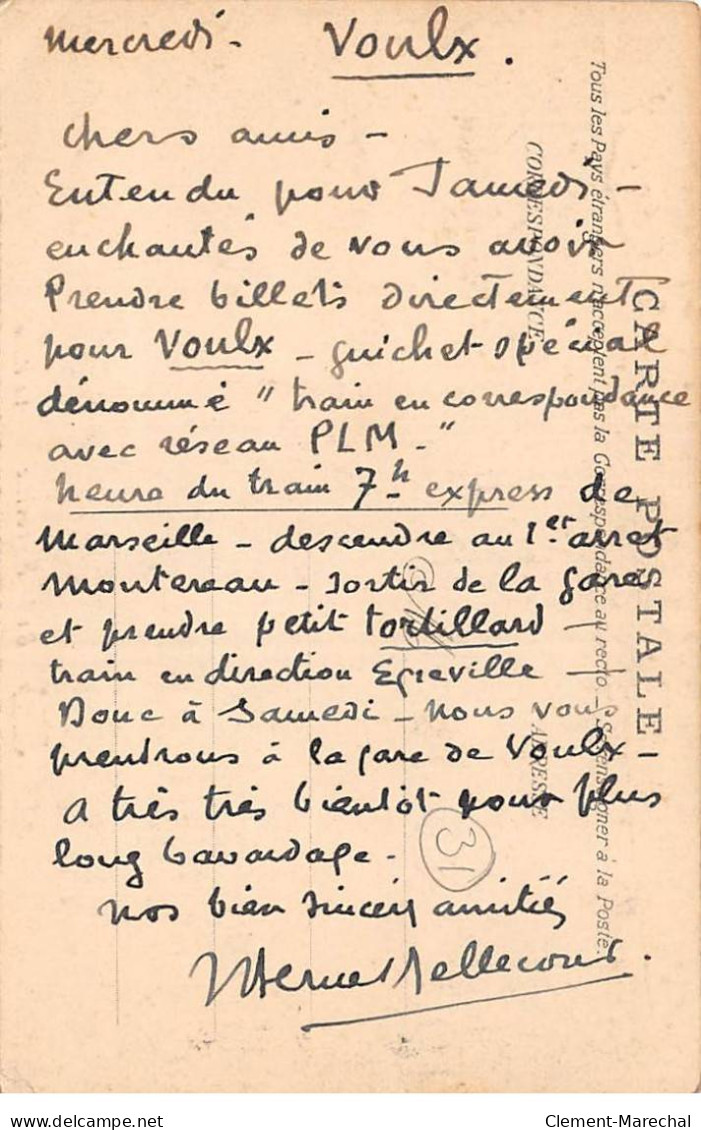 Mercredi - Voulx.
Chers amis -
Entendu pour Samedi -
enchantés de vous avoir
Prendre billets directement
pour Voulx - guichet spécial
dénommé " train en correspondance
avec réseau PLM - "
heure du train 7h express de
Marseille - descendre au 1er arret
Montereau - sortir de la gare
et prendre petit tortillard -
train en direction Egreville -
Donc à Samedi - nous vous
prendrons à la gare de Voulx -
A très très bientôt pour plus
long bavardage -
nos bien sincères amitiés
CARTE POSTALE
Tous les Pays étrangers n'acceptent pas la Correspondance au recto. - Se renseigner à la Poste.
CORRESPONDANCE
ADRESSE
31
delcampe.net
Clement-Marechal